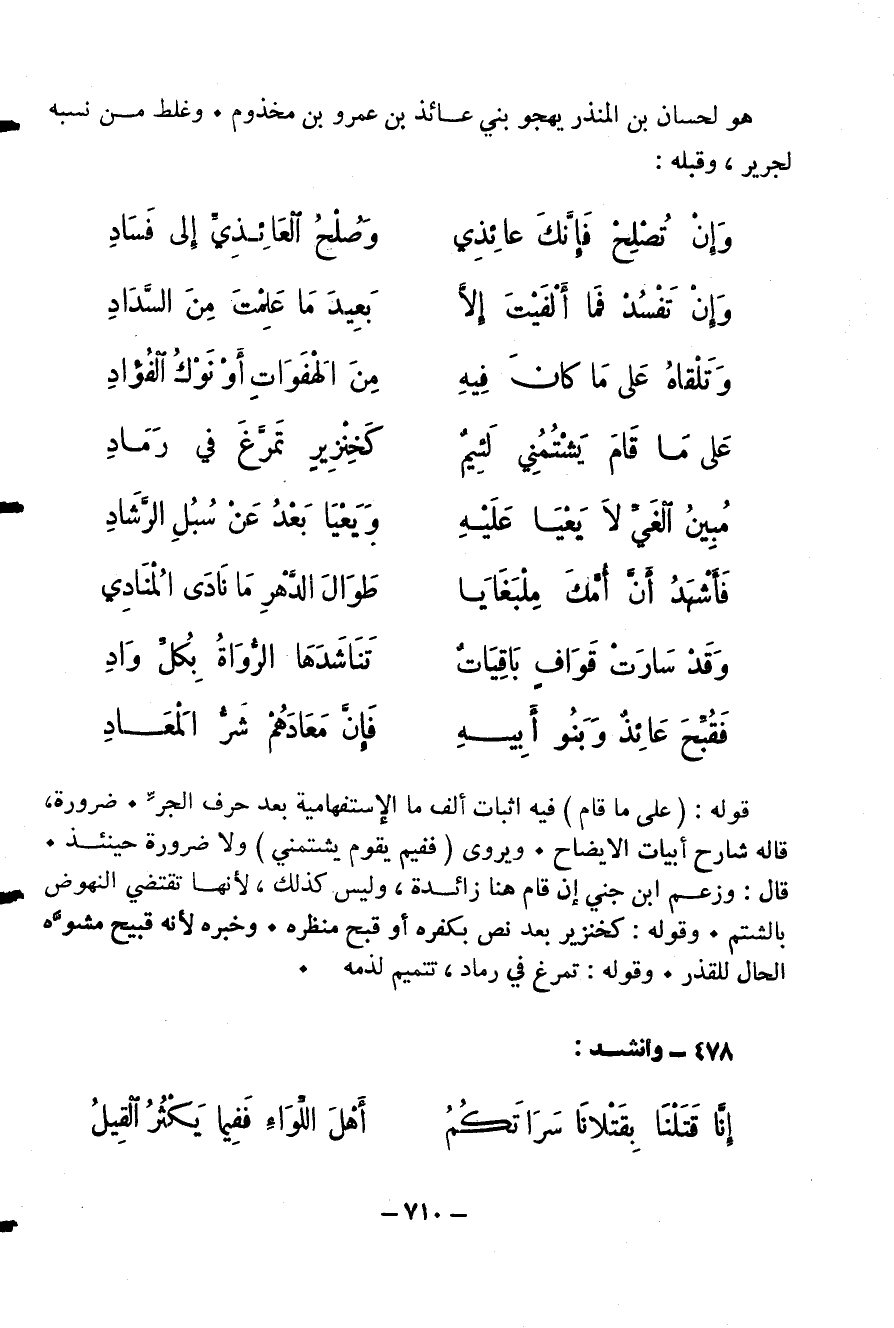 هو لحسان بن المنذر يهجو بني عـــائذ بن عمرو بن مخذوم ٠ وغلط مــن نسبه
لجرير ، وقبله :
وَإِنْ تُصْلِحْ فَإِنَّكَ عائِذي وَصُلْحُ ٱلعَائِـذِيِّ إِلى فَسَادِ
وَإِنْ تَفْسُدْ فَمَا أَلْفَيْتَ إِلاَّ بَعِيدَ مَا عَلِمْتَ مِنَ السَّدَادِ
وَتَلْقاهُ عَلى مَا كانَ فِيهِ مِنَ الهْفَوَاتِ أَوْ نَوْكُ ٱلفُؤَادِ
عَلى مَـا قَامَ يَشْتُمُنِي لَئِيمٌ كَخِنْزِيرٍ تَمَرَّغَ في رَمَـادِ
مُبِينُ ٱلغَيِّ لاَ يَعْيَـا عَلَيْـهِ وَيَعْيَا بَعْدُ عَنْ سُبُلِ الرَّشَادِ
فَأَشْهَدُ أَنَّ أُمَّكَ مِلْبَغَايَـا طَوَالَ الدَّهْرِ مَا نَادَى المْنَادِي
وَقَدْ سَارَتْ قَوَافٍ بَاقِيَاتٌ تَنَاشَدَهَا الرُّوَاةُ بِكُلِّ وَادِ
فَقُبِّحَ عَائِذٌ وَبَنُو أَبِيـــهِ فَإِنَّ مَعَادَهُمْ شَرُّ المْعَـــادِ
قوله : ( على ما قام ) فيه اثبات ألف ما الإستفهامية بعد حرف الجرّ ٠ ضرورة،
قاله شارح أبيات الايضاح ٠ ويروى ( ففيم يقوم يشتمني ) ولا ضرورة حينئــذ ٠
قال : وزعـم ابن جني إن قام هنا زائـدة ، وليس كذلك ، لأنهـا تقتضي النهوض
بالشتم ٠ وقوله : كخنزير بعد نص بكفره أو قبح منظره ٠ وخبره لأنه قبيح مشوّه
الحال للقذر ٠ وقوله : تمرغ في رماد ، تتميم لذمه ٠
٤٧٨ – وانشــد :
إِنَّا قَتَلْنَا بِقَتْلانَا سَرَاتَكُمُ أَهْلَ اللِّوَاءِ فَفِيما يَكْثُرُ ٱلقِيلُ
– ٧١٠ –